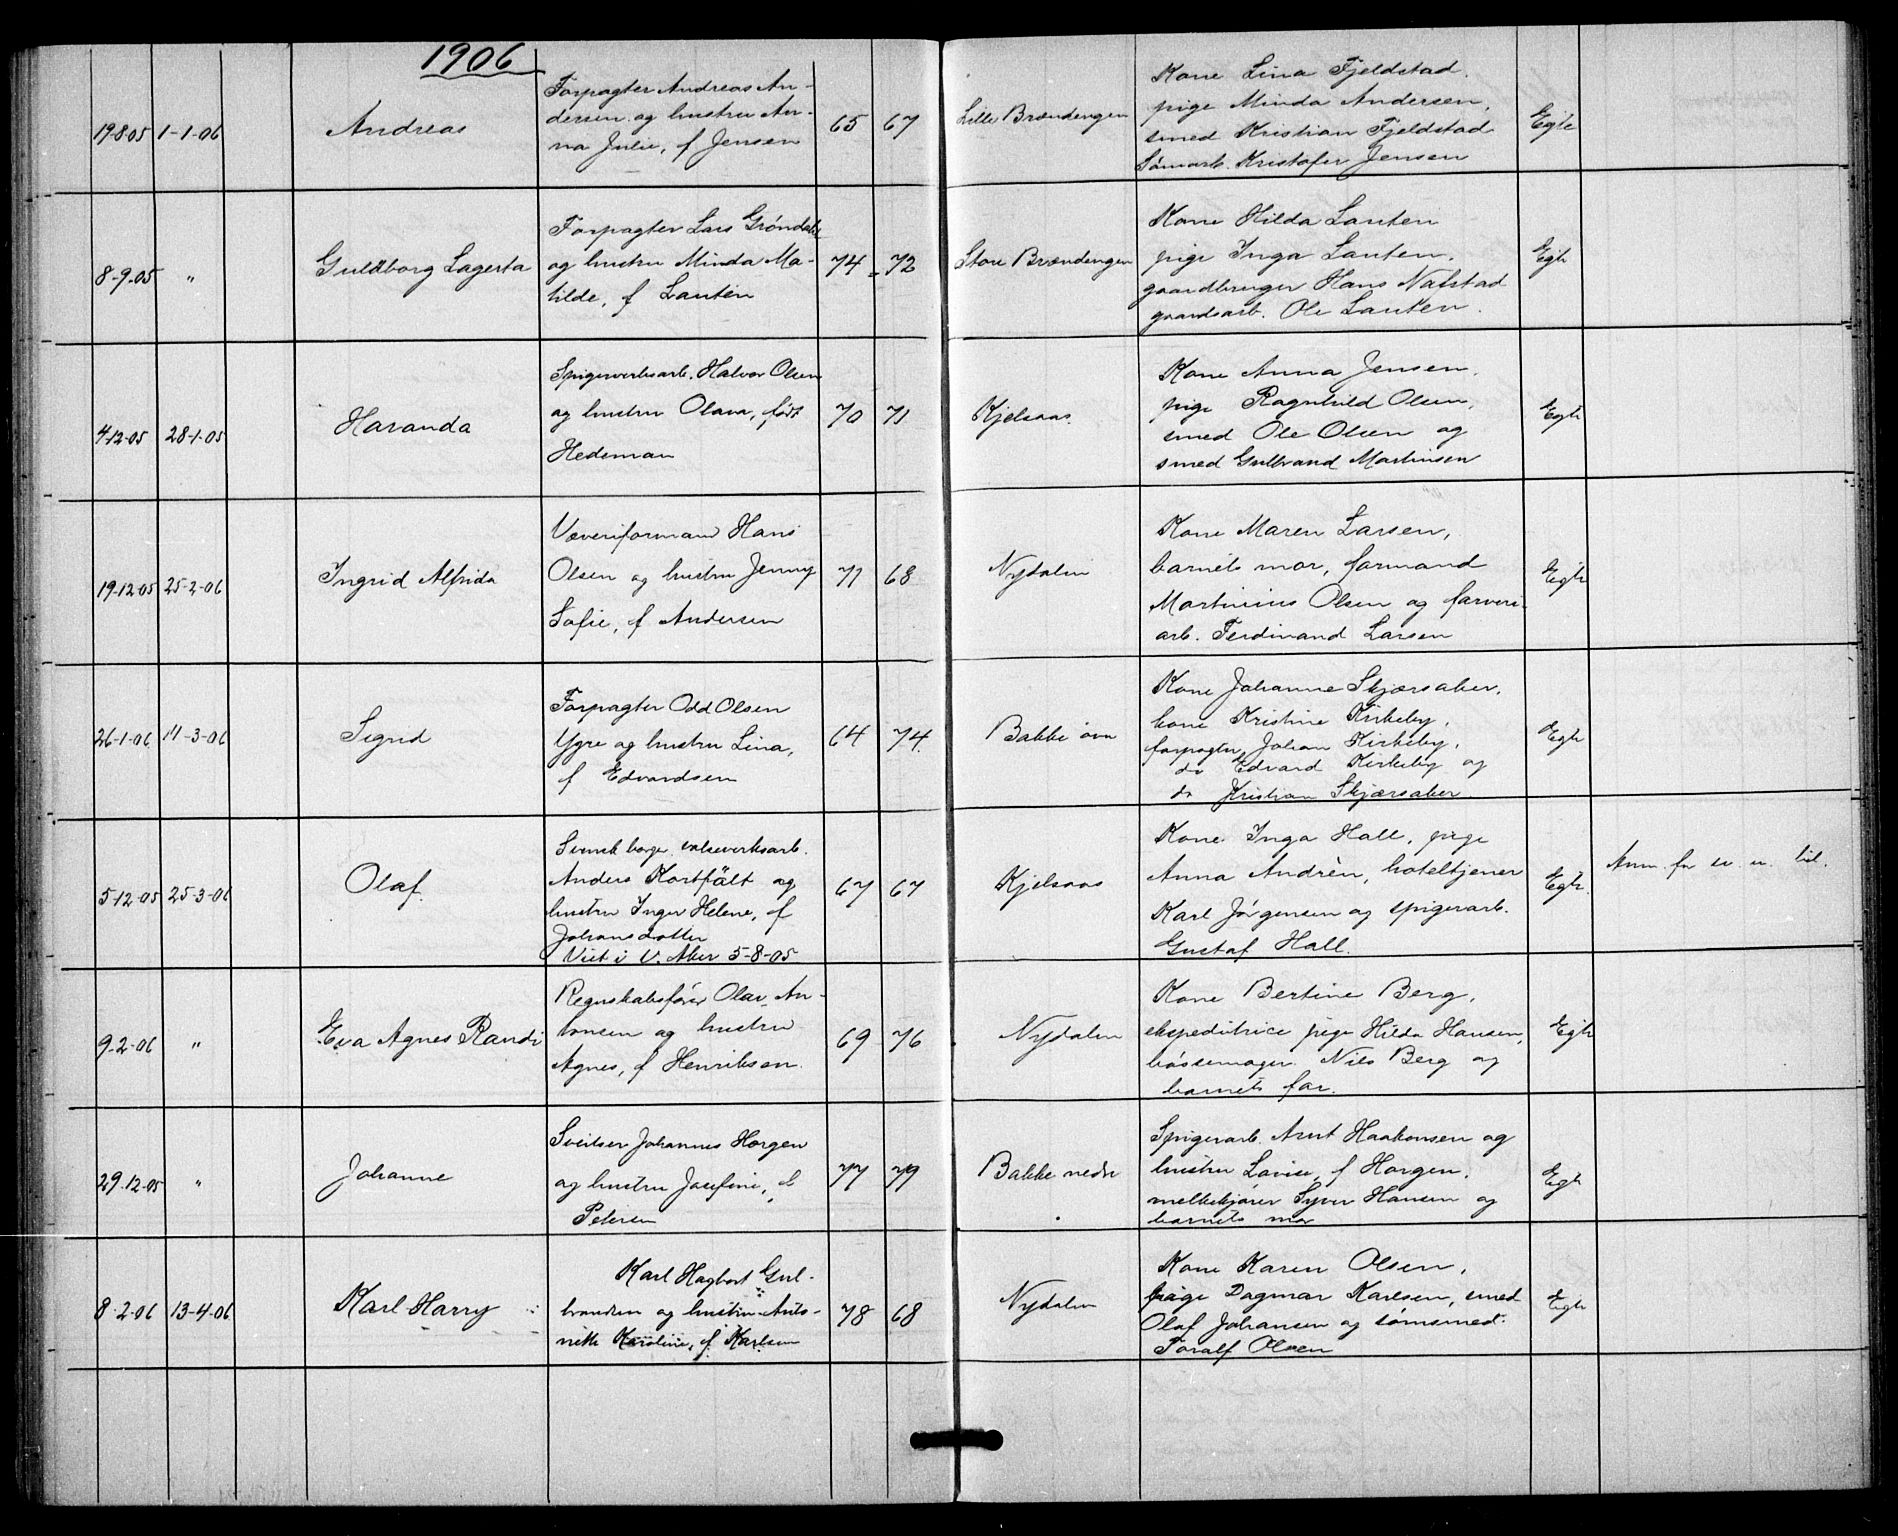 1906
19-8-05 1-1-06 Andreas
Forpagter Andreas An-
dersen og hustru An-
na Julie, f Jensen
65 67
Lille Brændengen
Kone Lina Fjeldstad,
pige Minda Andersen,
smed Kristian Fjeldstad
Sømarb. Kristofer Jensen
Egte
8-9-05 " Guldborg Lagerta
Forpagter Lars Grøndahl
og hustru Minda Ma-
tilde, f Lauten
74 72
Store Brændengen
Kone Hilda Lauten
pige Inga Lauten,
gaardbruger Hans Natstad
gaardsarb. Ole Lauten.
Egte
4-12-05 28-1-05 Haranda
Spigerverksarb. Halvor Olsen
og hustru Olava, født
Hedeman
70 71
Kjelsaas.
Kone Anna Jensen,
pige Ragnhild Olsen,
smed Ole Olsen og
smed Gulbrand Martinsen
Egte
19-12-05 25-2-06 Ingrid Alfrida
Væveriformand Hans
Olsen og hustru Jenny
Sofie, f Andersen
71 68
Nydalen
Kone Maren Larsen,
barnets mor, formand
Martinius Olsen og farveri-
arb. Ferdinand Larsen
Egte
26-1-06 11-3-06 Sigrid
Forpagter Odd Olsen
Ygre og hustru Lina,
f Edvardsen
64 74.
Bakke øvre
Kone Johanne Skjærsaker,
kone Kristine Kirkeby,
forpagter Johan Kirkeby,
do Edvard Kirkeby og
do Kristian Skjærsaker.
Egte
5-12-05 25-3-06 Olaf
Svensk borger valseverksarb.
Anders Kortfält og
hustru Inger Helene, f
Johansdotter
Viet i V. Aker 5-8-05
67 67
Kjelsaas
Kone Inga Hall, pige
Anna Andrèn, hoteltjener
Karl Jørgensen og spigerarb.
Gustaf Hall.
Egte.
Anm. fr
9-2-06 " Eva Agnes Randi
Regnskabsfører Olav An-
tonsen og hustru
Agnes, f Henriksen.
69 76
Nydalen
Kone Bertine Berg,
ekspeditrice pige Hilda Hansen,
bøssemager Nils Berg og
barnets far.
Egte
29-12-05 " Johanne
Sveitser Johannes Horgen
og hustru Josefine, f
Petersen
77 79
Bakke nedre
Spigerarb. Arnt Haakonsen og
hustru Lovise, f Horgen,
melkekjører Syver Hansen og
barnets mor
Egte
8-2-06 13-4-06 Karl Harry
Karl Hagbart Gul-
brandsen og hustru Anto-
nette Karoline, f Karlsen
78 68
Nydalen
Kone Karen Olsen,
pige Dagmar Karlsen, smed
Olaf Johansen og sømsmed
Toralf Olsen
Egte